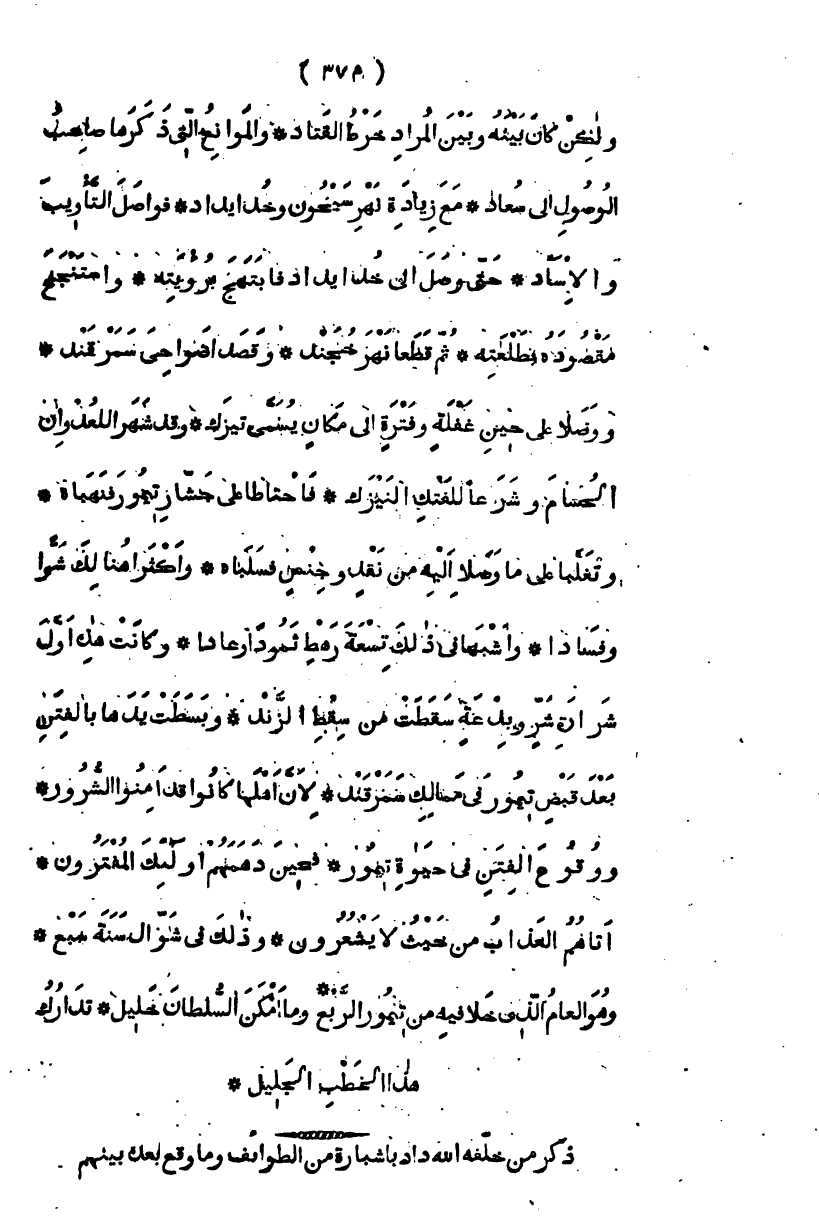 ( ٣٧٨ )
ولٰكِنْ كانَ بَيْنَهُ وبَيْنَ المُرادِ خَرْطُ القَتاد * والمَوانِعُ الّتى ذَكَرَها صاحِبُ
الوُصُولِ الى سُعاد * مَعَ زِيادَةِ نَهْرِ سَيْحُون وخُدايداد * فواصَلَ التَّأْوِيبَ
والاِسْآد * حَتّى وصَلَ الى خُدايداد فابْتَهَجَ بِرُؤْيَتِه * واسْتَنْجَحَ
مَقْصُودَهُ بطَلْعَتِه * ثُمّ قَطَعا نَهْرَ خُجَنْد * وقَصَدا ضَواحِىَ سَمَرْقَنْد *
ووصَلا على حِينِ غَفْلَةٍ وفَتْرَةٍ الى مَكانٍ يُسَمّى تيزَك * وقد شَهَرا للعُدْوانِ
الحُسامَ وشَرَعا للفَتْكِ النَّيْزَك * فَاحْتاطا على جَشّارِ تِيمُورَ فنَهَباه *
وتَغَلَّبا على ما وَصَلا اِلَيْهِ من نَقْدٍ وجِنْسٍ فسَلَباه * وأكْثَرا هُنالِكَ شَرّا
وفَسادا * وأَشْبَها فى ذٰلكَ تِسْعَةَ رَهْطِ ثَمُودَ اَوعادا * وكانَتْ هٰذِه اَوَّلَ
شَرارَةِ شَرٍّ وبِدْعَةٍ سَقَطَتْ من سِقْطِ الزَّنْد * وبَسَطَتْ يَدَها بالفِتَنِ
بَعْدَ قَبْضِ تِيمُورَ فى مَمالِكِ سَمَرْقَنْد * لِاَنَّ اَهْلَها كانُوا قد اَمِنُوا الشُّرُور *
ووُقُوعَ الفِتَنِ فى حَيٰوةِ تِيمُور * فحِينَ دَهَمَهُمْ اُولٰئِكَ المُفْتَرُون *
اَتاهُمُ العَذابُ من حَيْثُ لا يَشْعُرون * وذٰلكَ فى شَوّال سَنَةَ سَبْعٍ *
وهُوَ العامُ الَّذى خَلا فيهِ من تِيمُورَ الرَّبْعُ * وما اَمْكَنَ السُّلطانَ خَليل * تَدارُكُ
هذا الخَطْبِ الجَلِيل *
ذكر من خلّفه الله داد باشبارة من الطوائف وما وقع بعده بينهم